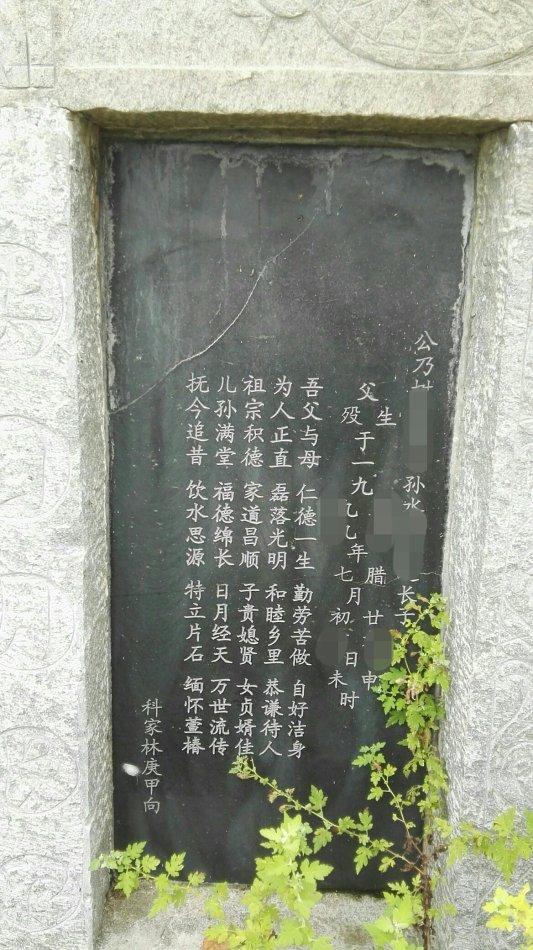 公乃 孙 长子
父生殁于一九 年腊七月廿初 日申未时
吾父与母 仁德一生 勤劳苦做 自好洁身
为人正直 磊落光明 和睦乡里 恭谦待人
祖宗积德 家道昌顺 子贵媳贤 女贞婿佳
儿孙满堂 福德绵长 日月经天 万世流传
抚今追昔 饮水思源 特立片石 缅怀萱椿
科家林庚甲向